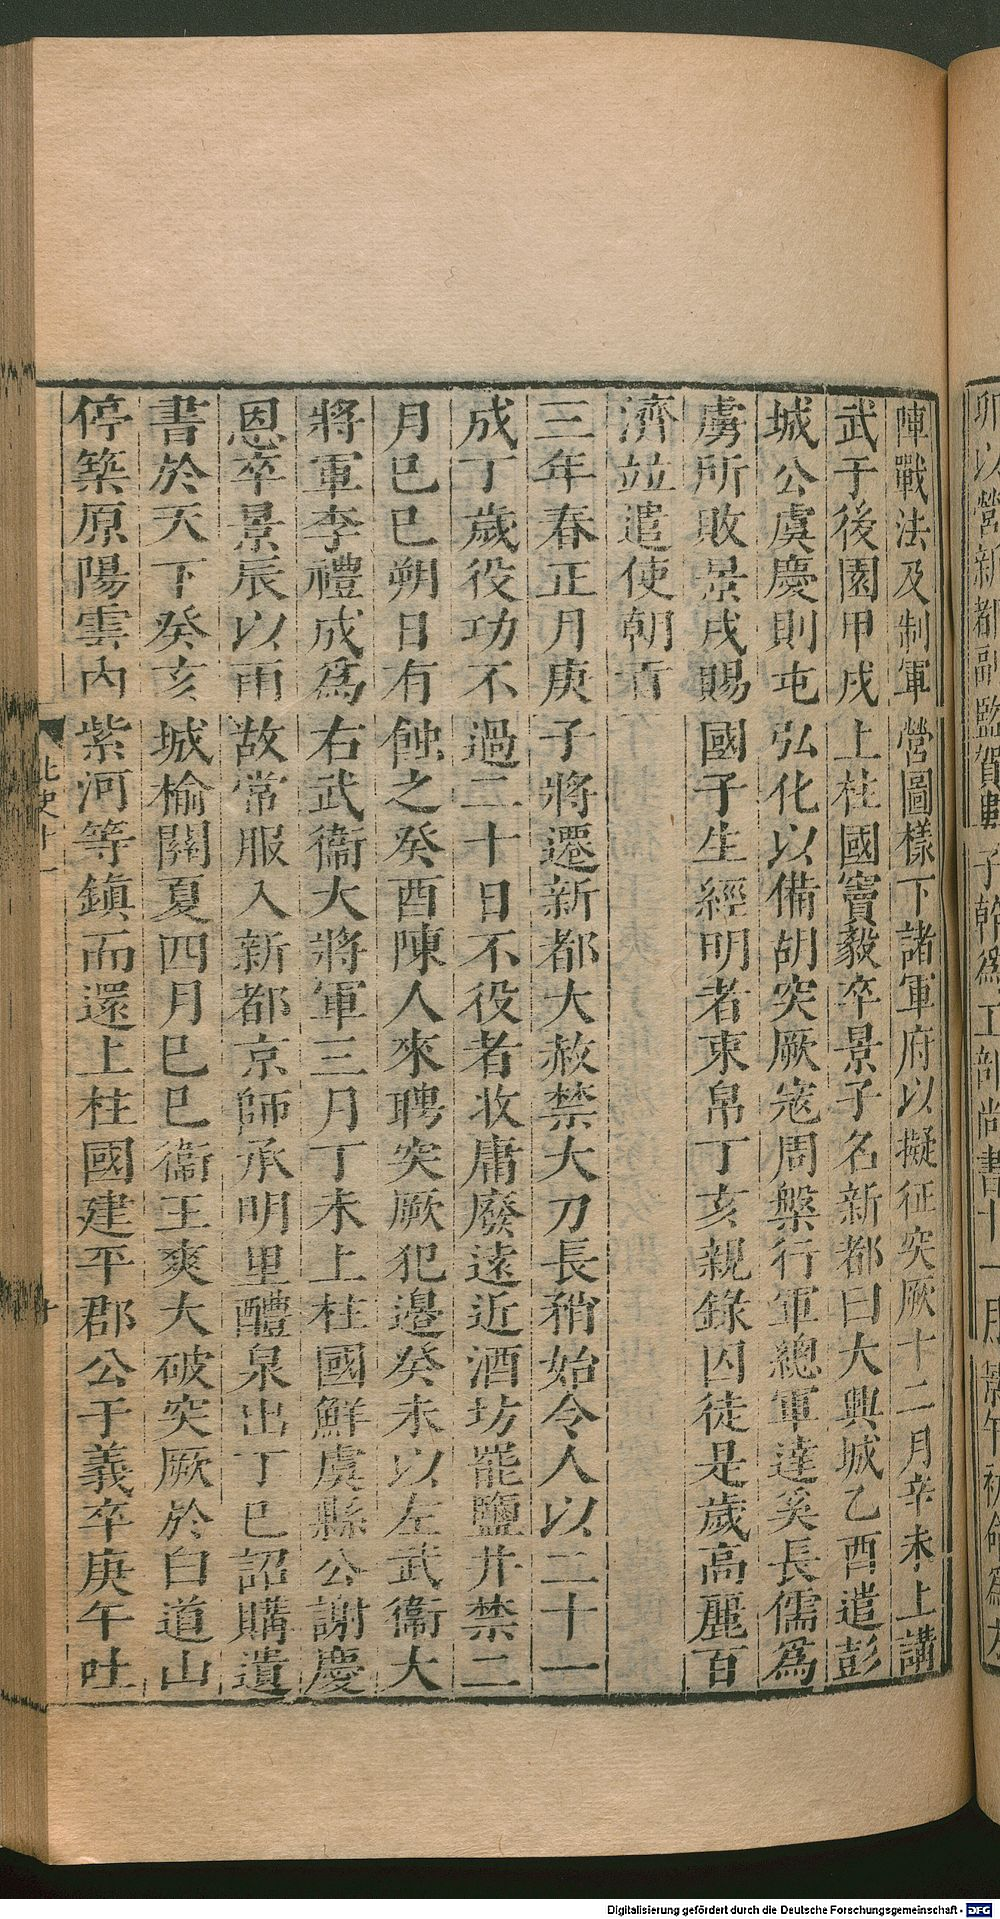 陣戰法及制軍營圖樣下諸軍府以擬征突厥十二月辛未上講
武于後園甲戌上柱國竇毅卒景子名新都曰大興城乙酉遣彭
城公虞慶則屯弘化以備胡突厥寇周槃行軍總軍達奚長儒爲
虜所敗景戌賜國子生經明者束帛丁亥親錄囚徒是歲高麗百
濟並遣使朝貢
三年春正月庚子將遷新都大赦禁大刀長矟始令人以二十一
成丁歲役功不過二十日不役者收庸廢遠近酒坊罷鹽井禁二
月巳巳朔日有蝕之癸酉陳人來聘突厥犯邊癸未以左武衞大
將軍李禮成爲右武衞大將軍三月丁未上柱國鮮虞縣公謝慶
恩卒景辰以雨故常服入新都京師承明里醴泉出丁巳詔購遺
書於天下癸亥城榆關夏四月巳巳衞王爽大破突厥於白道山
停築原陽雲內紫河等鎮而還上柱國建平郡公于義卒庚午吐
北史十一
十
Digitalisierung gefördert durch die Deutsche Forschungsgemeinschaft - DFG